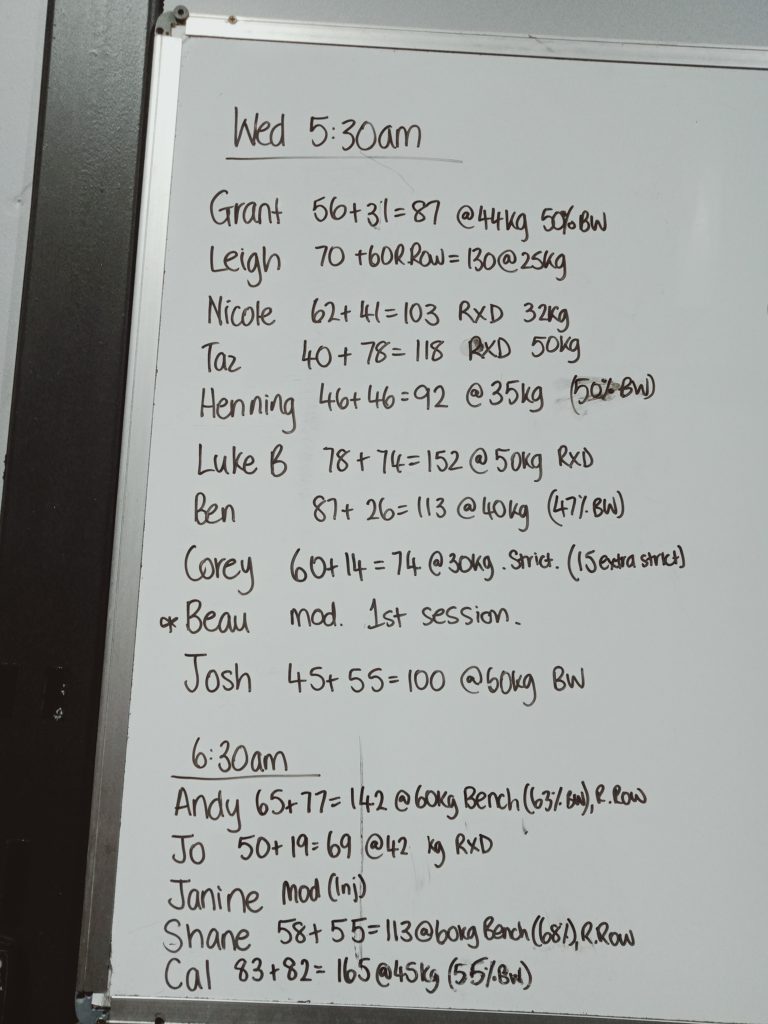 Wed 5:30am
Grant 56+31=87 @44kg 50% BW
Leigh 70 +60R.Row= 130@25kg
Nicole 62+41=103 RXD 32kg
Taz 40+78= 118 RXD 50kg
Henning 46+46=92 @35kg (50% BW)
Luke B 78+74=152 @50kg RXD
Ben 87+26=113 @40kg (47% BW)
Corey 60+14=74 @30kg. Strict. (15 extra strict)
* Beau mod. 1st session.
Josh 45+55=100 @50kg BW
6:30am
Andy 65+77= 142 @60kg Bench (63% BW), R.Row
Jo 50+19=69 @42 kg RXD
Janine Mod (Inj)
Shane 58+55=113@60kg Bench (68%), R.Row
Cal 83+82= 165@45kg (55% BW)